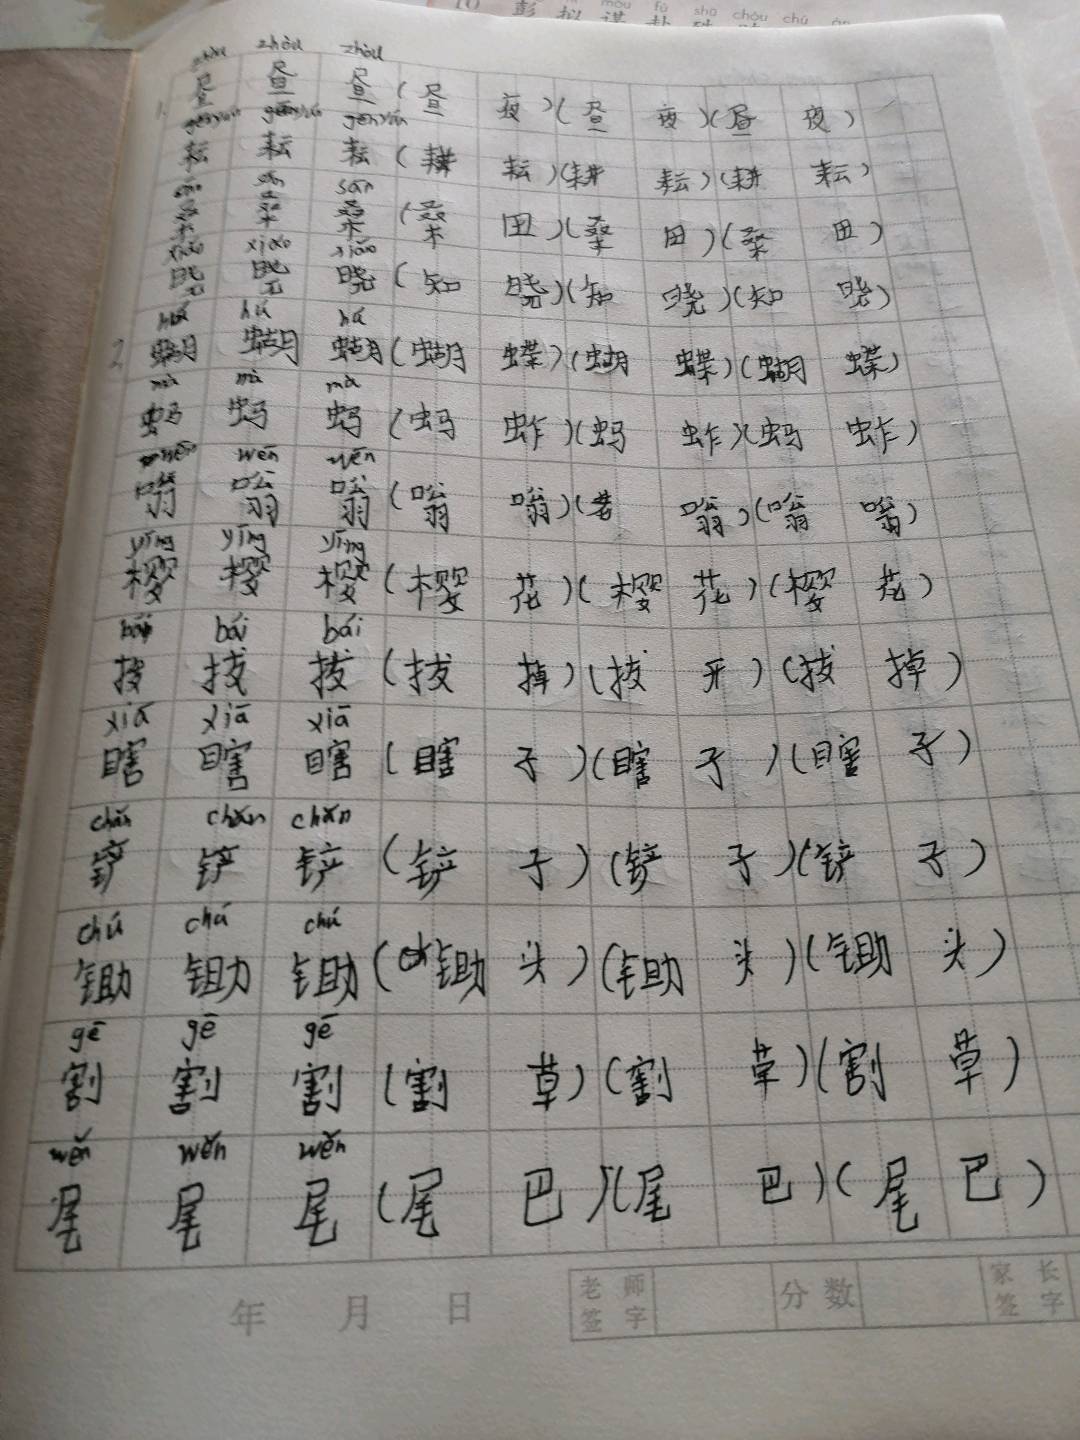 zhòu zhòu zhòu
1. 昼 昼 昼 ( 昼 夜 ) ( 昼 夜 ) ( 昼 夜 )
耘 耘 耘 ( 耕 耘 ) ( 耕 耘 ) ( 耕 耘 )
sān sān
桑 桑 桑 ( 桑 田 ) ( 桑 田 ) ( 桑 田 )
xiǎo xiǎo xiǎo
晓 晓 晓 ( 知 晓 ) ( 知 晓 ) ( 知 晓 )
hú hú hú
2 蝴 蝴 蝴 ( 蝴 蝶 ) ( 蝴 蝶 ) ( 蝴 蝶 )
mà mà mà
蚂 蚂 蚂 ( 蚂 蚱 ) ( 蚂 蚱 ) ( 蚂 蚱 )
wēn wēn wēn
嗡 嗡 嗡 ( 嗡 嗡 ) ( 嗡 ) ( 嗡 嗡 )
yīng yīng yīng
樱 樱 樱 ( 樱 花 ) ( 樱 花 ) ( 樱 花 )
bái bái bái
拔 拔 拔 ( 拔 掉 ) ( 拔 牙 ) ( 拔 掉 )
xiā xiā xiā
瞎 瞎 瞎 ( 瞎 子 ) ( 瞎 子 ) ( 瞎 子 )
chǎn chǎn chǎn
铲 铲 铲 ( 铲 子 ) ( 铲 子 ) ( 铲 子 )
chú chú chú
锄 锄 锄 ( 锄 头 ) ( 锄 头 ) ( 锄 头 )
gē gē gē
割 割 割 ( 割 草 ) ( 割 草 ) ( 割 草 )
wěn wěn wěn
尾 尾 尾 ( 尾 巴 ) ( 尾 巴 ) ( 尾 巴 )
年 月 日 老师签字 分数 家长签字